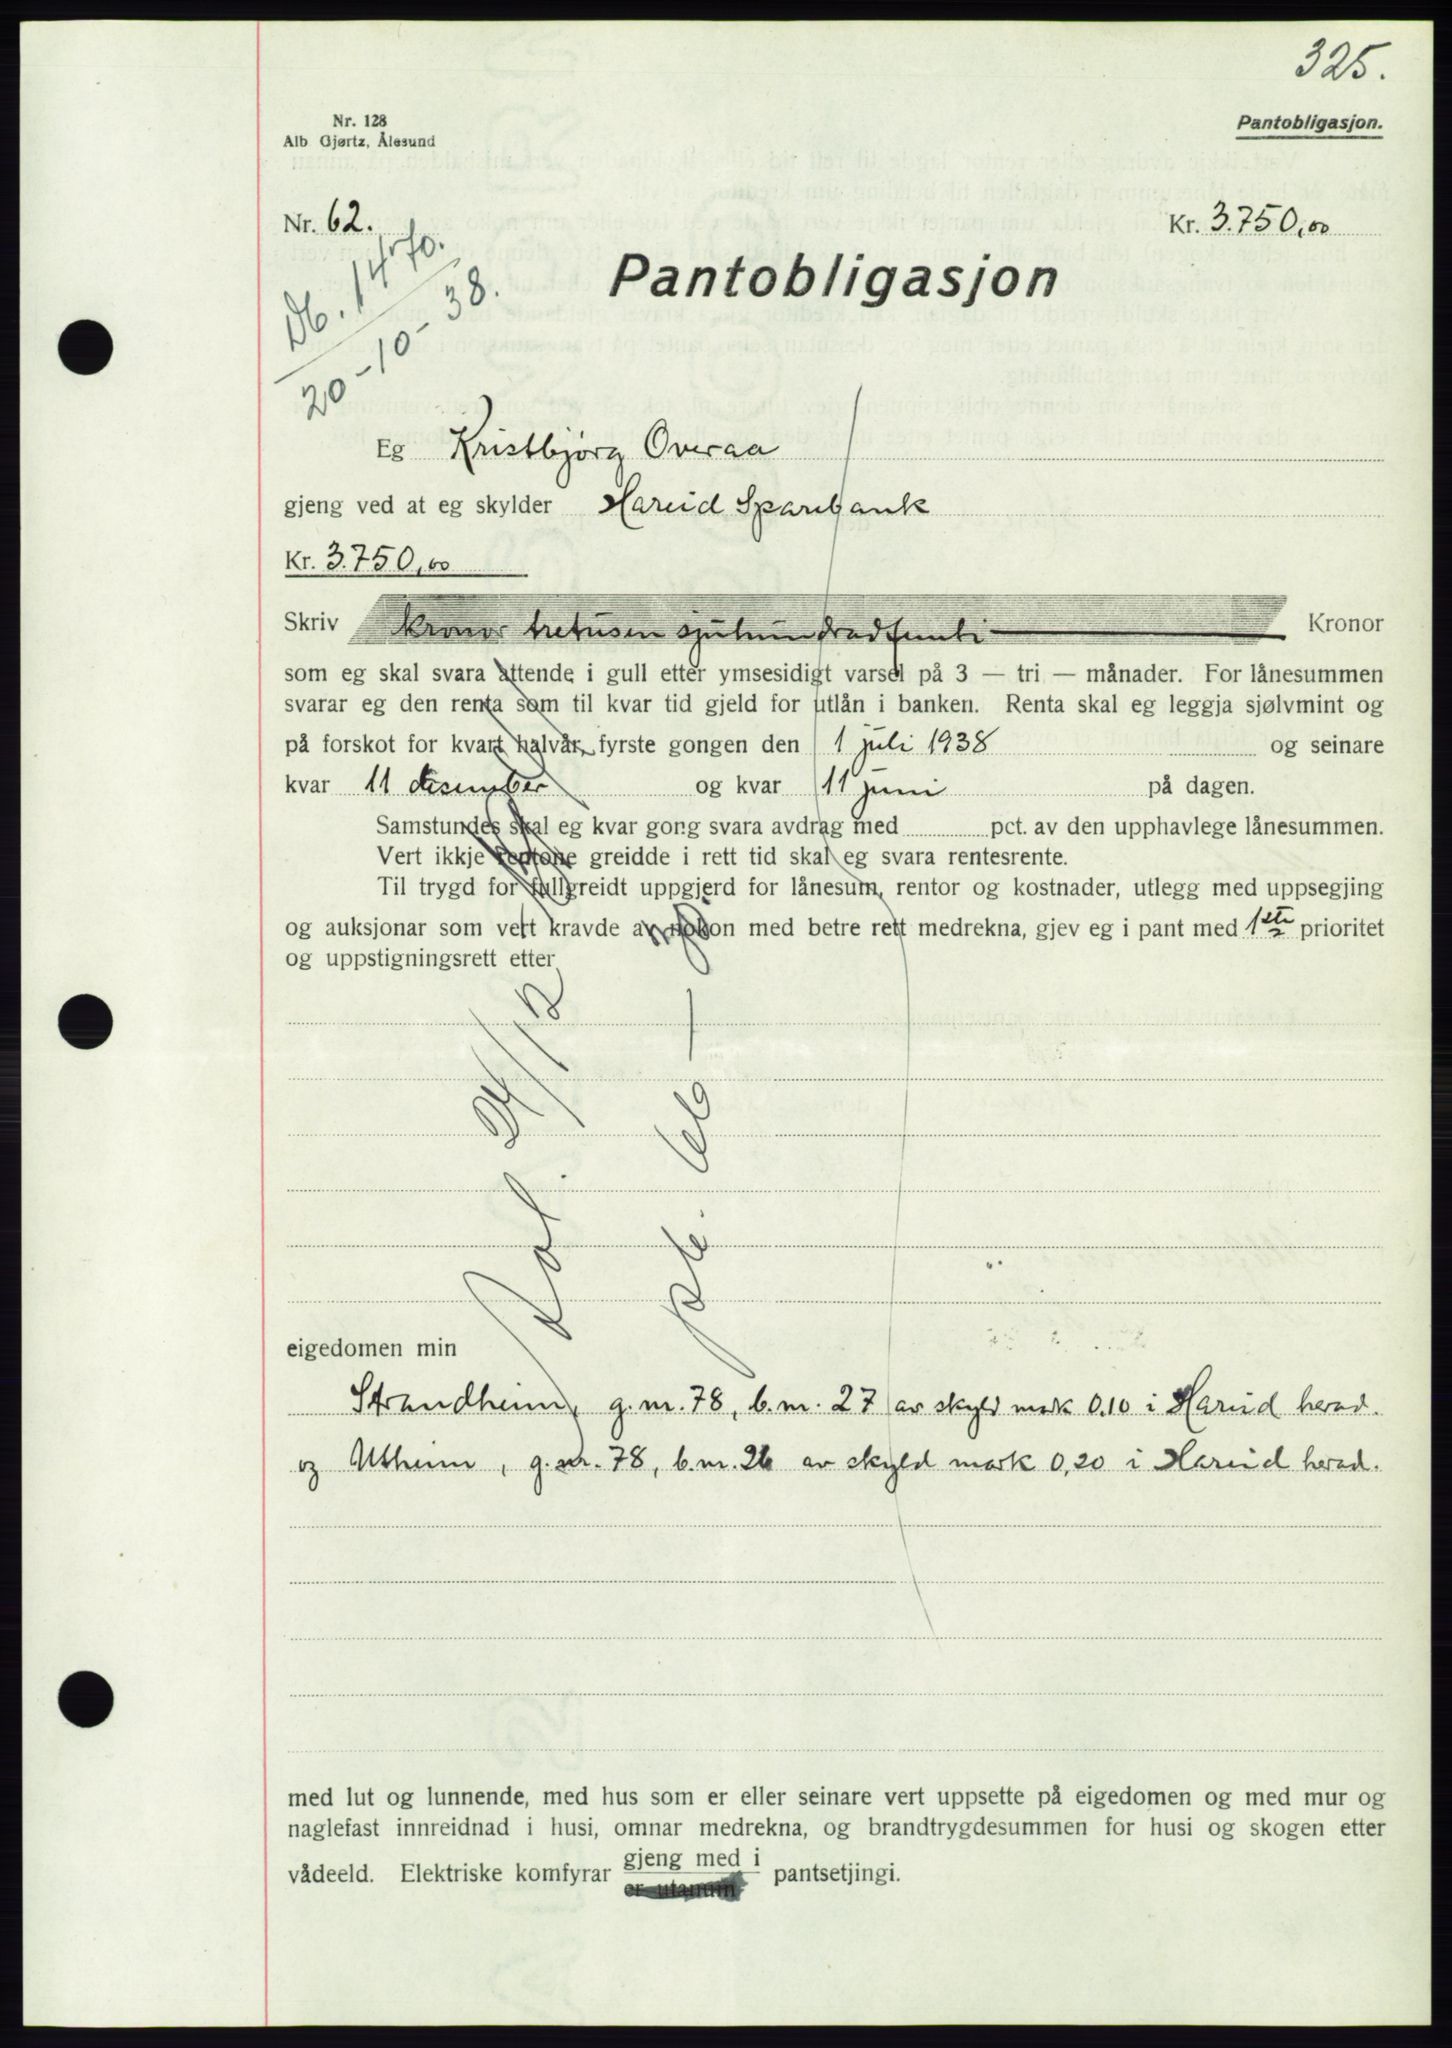 325.
Nr. 128
Alb Gjørtz, Ålesund
Pantobligasjon.
Nr. 62.
Kr. 3.750,00
Db. 1470.
20-10-38.
Pantobligasjon
Eg Kristbjørg Overaa
gjeng ved at eg skylder Hareid Sparebank
Kr. 3.750,00
Skriv kronor tretusen sjuhundradfemti Kronor
som eg skal svara attende i gull etter ymsesidigt varsel på 3 — tri — månader. For lånesummen
svarar eg den renta som til kvar tid gjeld for utlån i banken. Renta skal eg leggja sjølvmint og
på forskot for kvart halvår, fyrste gongen den 1 juli 1938 og seinare
kvar 11 desember og kvar 11 juni på dagen.
Samstundes skal eg kvar gong svara avdrag med pct. av den upphavlege lånesummen.
Vert ikkje rentone greidde i rett tid skal eg svara rentesrente.
Til trygd for fullgreidt uppgjerd for lånesum, rentor og kostnader, utlegg med uppsegjing
og auksjonar som vert kravde av nokon med betre rett medrekna, gjev eg i pant med 1ste prioritet
og uppstigningsrett etter
eigedomen min
Strandheim, g.nr. 78, b.nr. 27 av skyld mark 0.10 i Hareid herad.
og Utheim, g.nr. 78, b.nr. 26 av skyld mark 0,20 i Hareid herad.
med lut og lunnende, med hus som er eller seinare vert uppsette på eigedomen og med mur og
naglefast innreidnad i husi, omnar medrekna, og brandtrygdesummen for husi og skogen etter
vådeeld. Elektriske komfyrar gjeng med i pantsetjingi.
er utanum